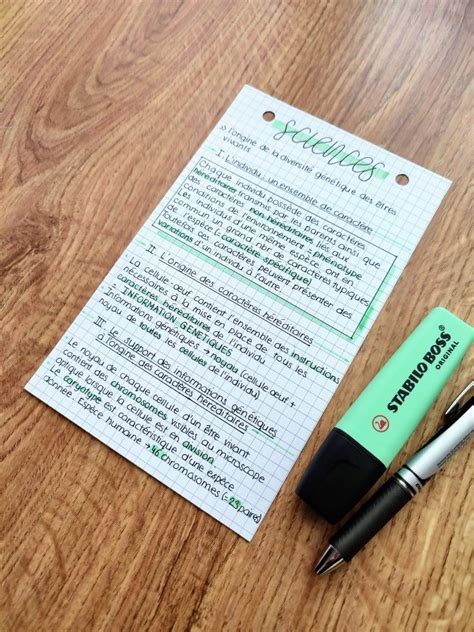 sciences
» l'origine de la diversité génétique des êtres
vivants
I. L'individu, un ensemble de caractère
Chaque individu possède des caractères
héréditaires transmis par les parents ainsi que
des caractères non héréditaires liés aux
conditions de l'environnement = phénotype
Les individus d'une même espèce ont en
commun un grand nbr de caractères typiques
de l'espèce (= caractère spécifique)
Toutefois ces caractères peuvent présenter des
variations d'un individu à l'autre.
II. L'origine des caractères héréditaires
La cellule-œuf contient l'ensemble des instructions
nécessaires à la mise en place de tous les
caractères héréditaires de l'individu
= INFORMATION GENETIQUES
Informations génétiques → noyau (cellule œuf +
noyau de toutes les cellules de l'individu)
III. Le support des informations génétiques
à l'origine des caractères héréditaires
Le noyau de chaque cellule d'un être vivant
contient des chromosomes visibles au microscope
optique lorsque la cellule est en division.
Le caryotype est caractéristique d'une espèce
donnée. Espèce humaine → 46 chromosomes (= 23 paires)
STABILO BOSS
ORIGINAL